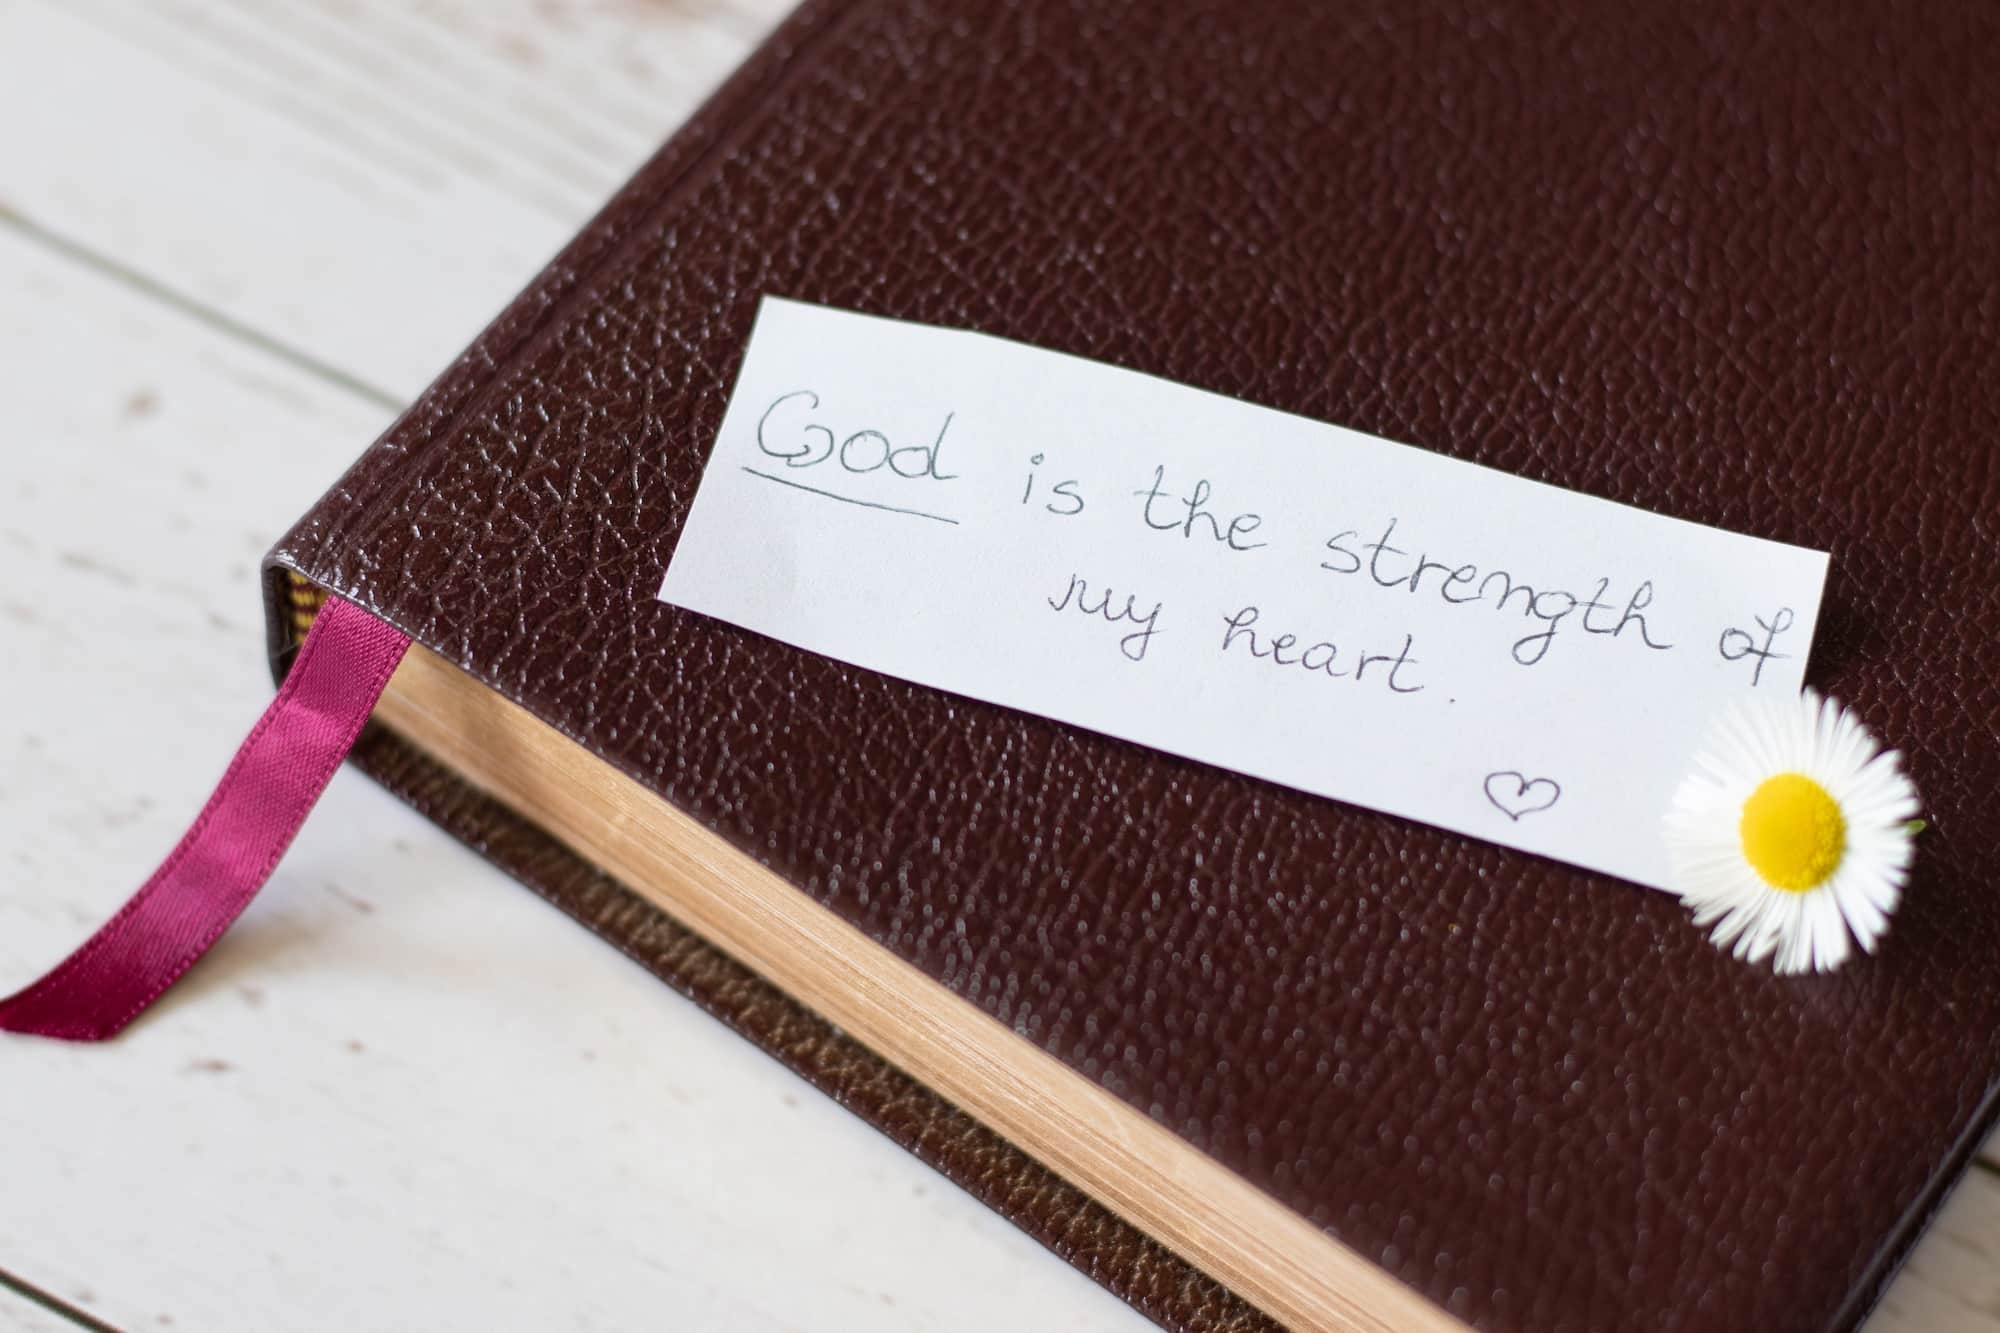 God is the strength of
my heart.